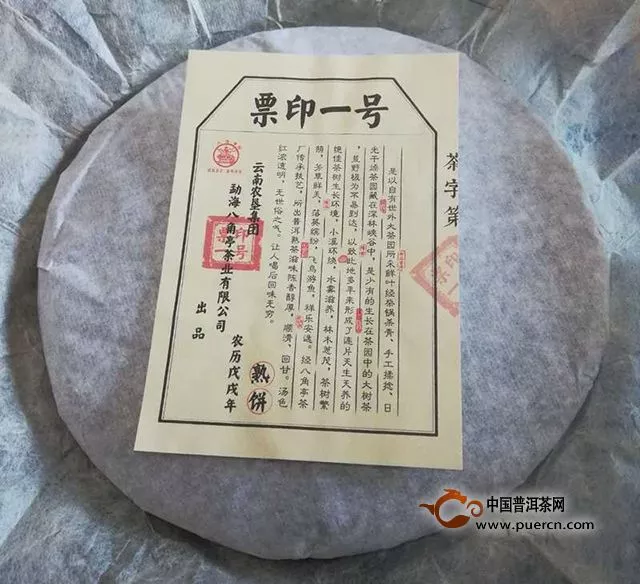 號一印票
茶字第
是以自有世外大茶园所采鲜叶经柴锅茶青、手工揉捻、日
光干燥茶园藏在深林峡谷中，是少有的生长在茶园中的大树茶
，荒野极为不易到达，以致此地多年来形成了连片天生天养的
绝佳茶树生长环境，小溪环绕，水雾滋养，林木葱茂，茶树繁
荫，芳草鲜美，落英缤纷，飞鸟游鱼，祥乐安逸。经八角亭茶
厂传承技艺，所出普洱熟茶滋味陈香醇厚，顺滑、回甘。汤色
红浓透明，无世俗之气。让人喝后回味无穷。
云南农垦集团
勐海八角亭茶业有限公司
出品
农历戊戌年
熟饼
票印一号
票印一
中国普洱茶网
www.puercn.com